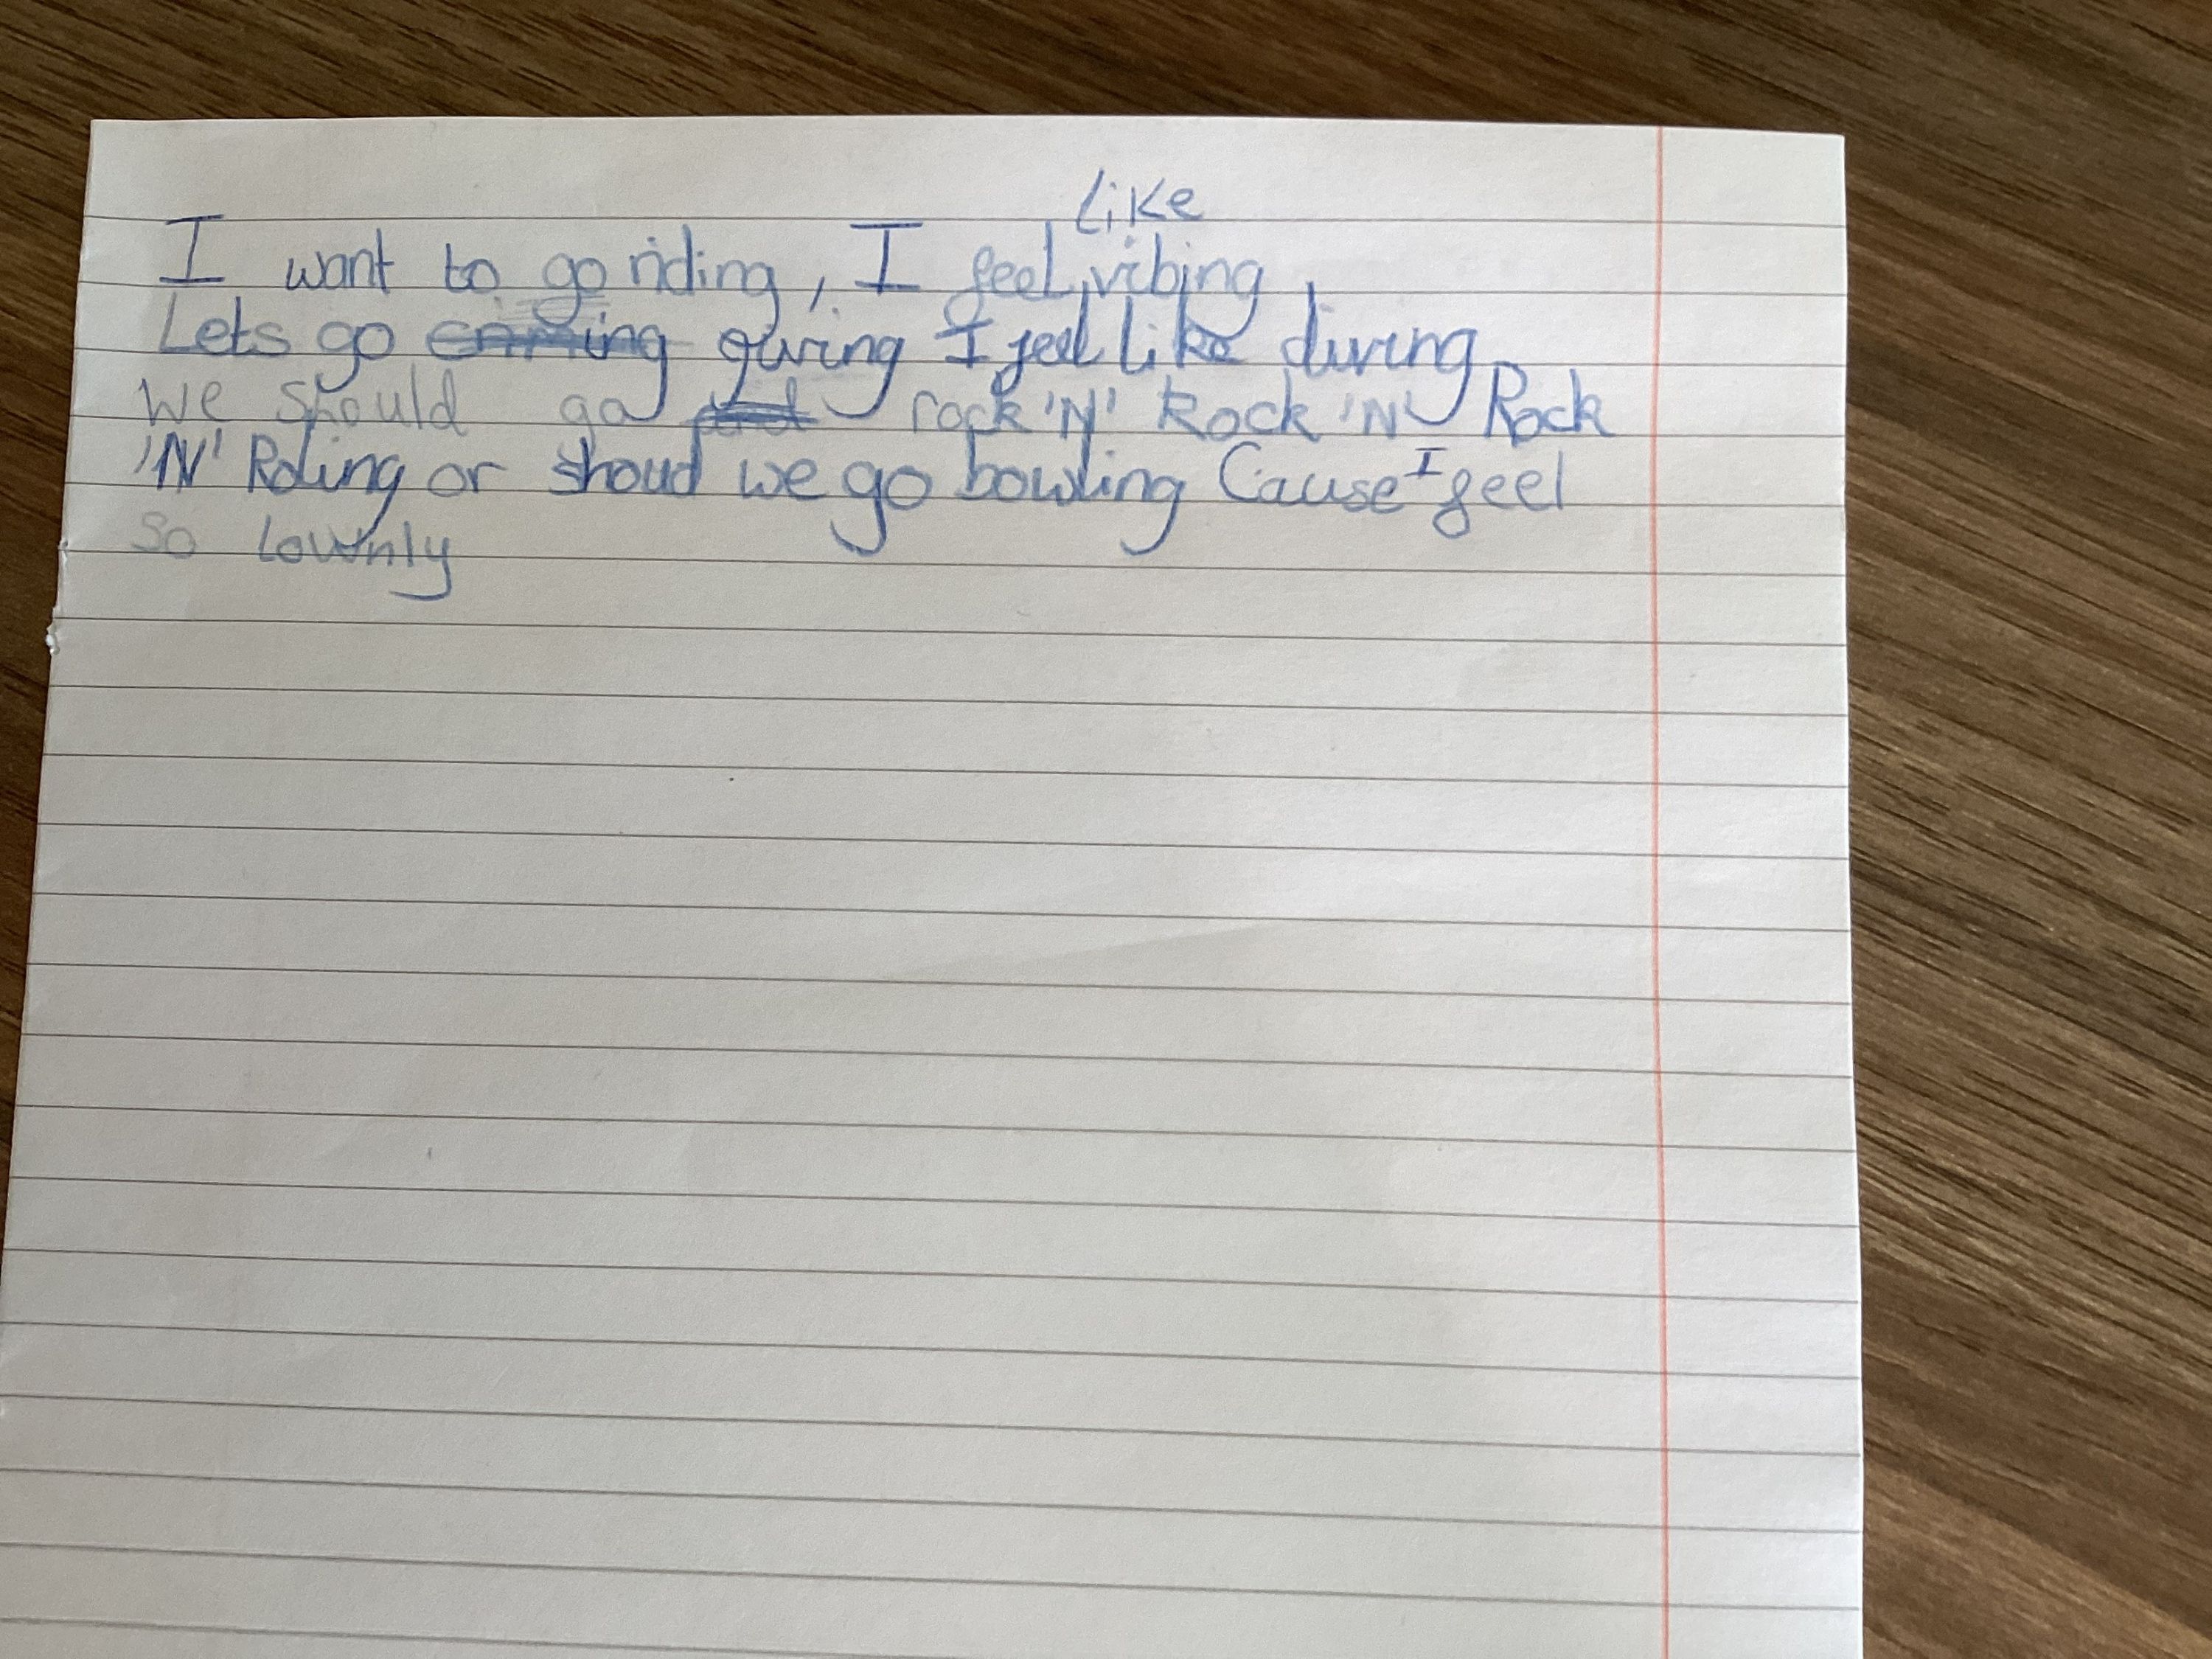 I want to go riding, I feel like vibing
Lets go giving I feel like diving
We should go rock 'N' Rock 'N' Rock
'N' Roling or shoud we go bowling Cause I feel
So Lownly